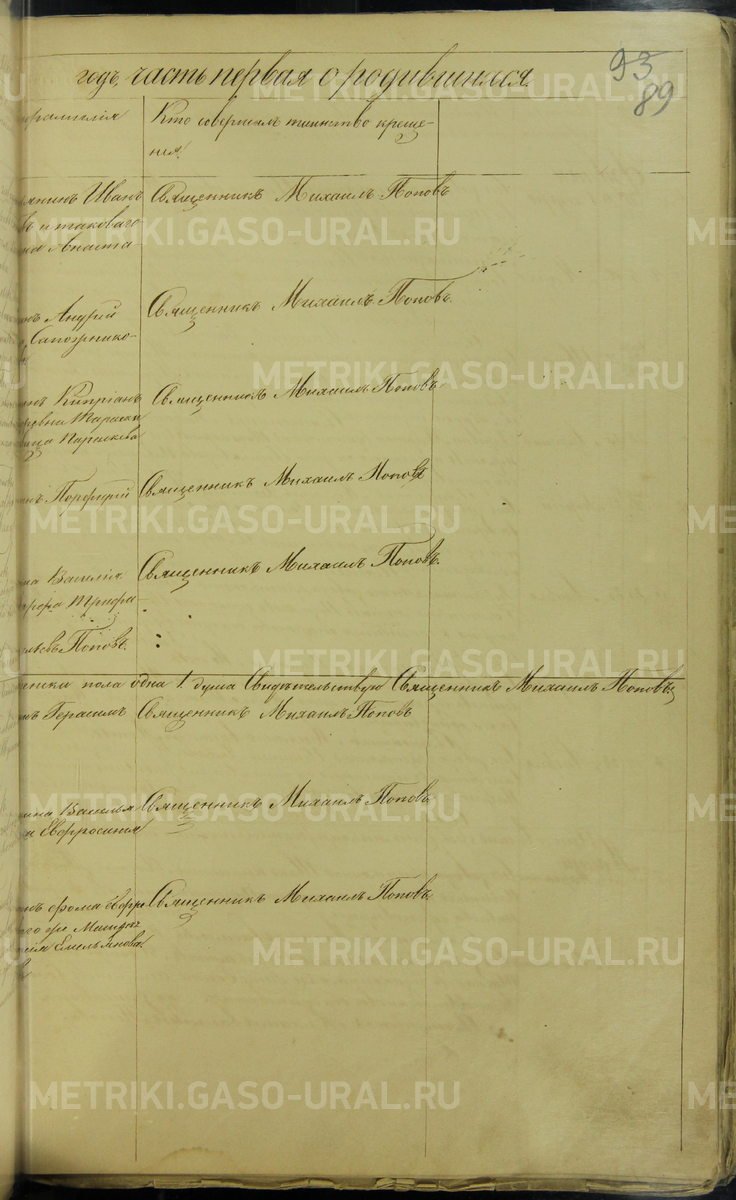 93
89
годъ, часть первая о родившихся.
фамилія
Кто совершилъ таинство креще-
нія.
Иванъ
и таковаго
Анаста-
Священникъ Михаилъ Поповъ
Андрей
Сапожнико-
Священникъ Михаилъ Поповъ
Кипріанъ
Параскева
Священникъ Михаилъ Поповъ
Порфирій
Священникъ Михаилъ Поповъ
Василія
Трифа-
Поповъ.
Священникъ Михаилъ Поповъ.
пола одна 1. душа Свидѣтельствую Священникъ Михаилъ Поповъ
Герасимъ
Священникъ Михаилъ Поповъ
Василья
Евфросинья
Священникъ Михаилъ Поповъ
Фома
Емельянова.
Священникъ Михаилъ Поповъ.
METRIKI.GASO-URAL.RU